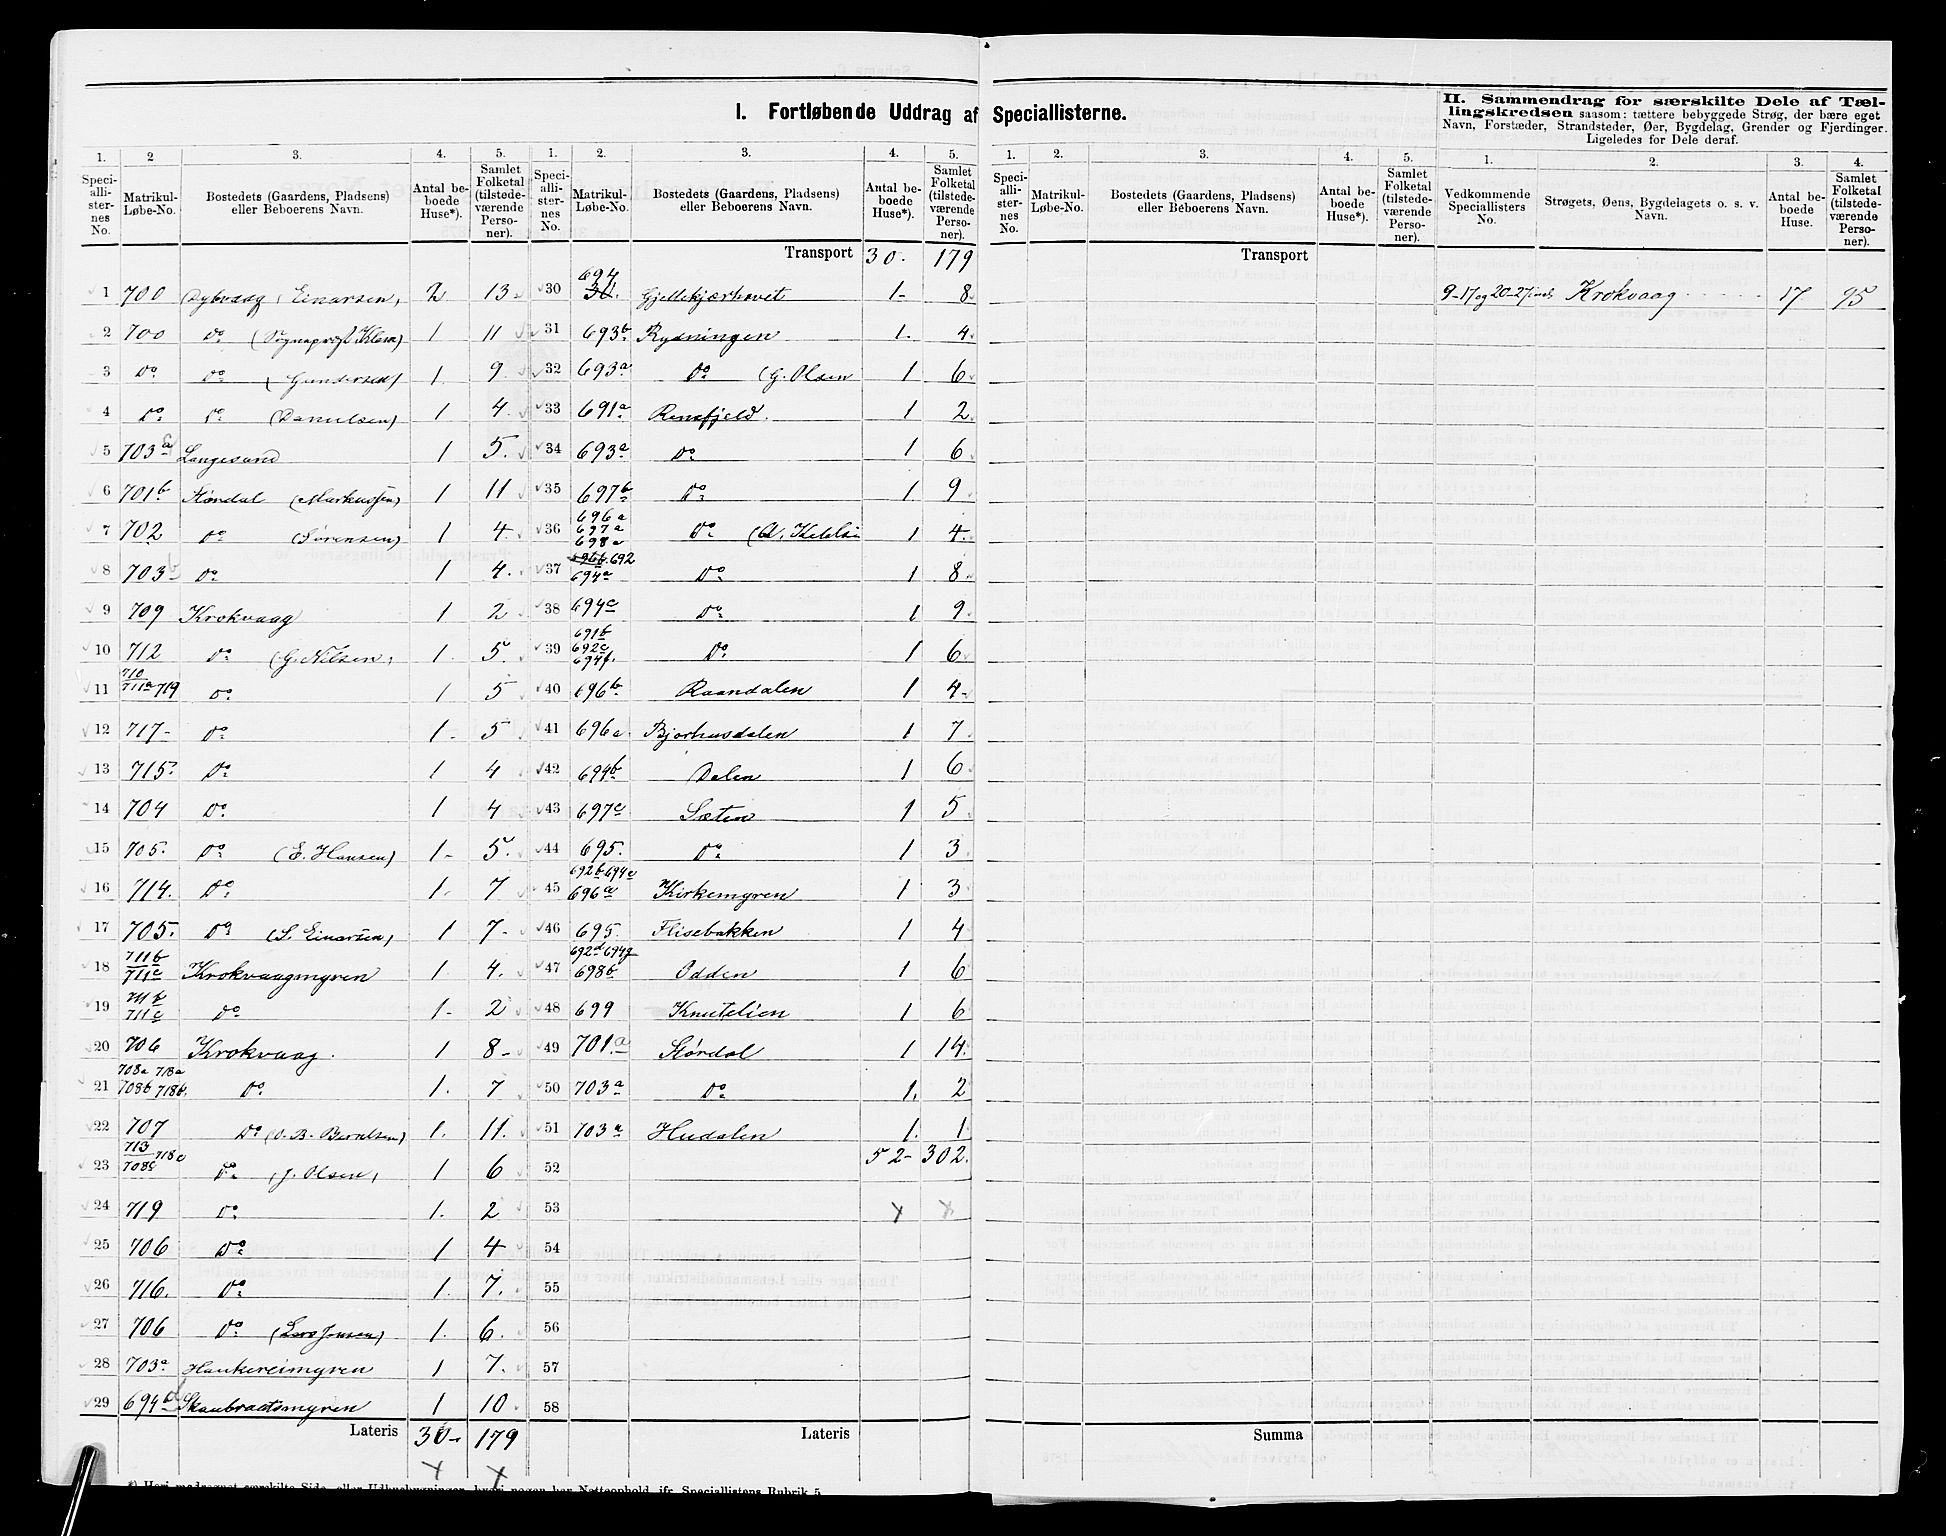 I. Fortløbende Uddrag af Speciallisterne.
II. Sammendrag for særskilte Dele af Tæl-
lingskredsen saasom: tættere bebyggede Strøg, der bære eget
Navn, Forstæder, Strandsteder, Øer, Bygdelag, Grender og Fjerdinger.
Ligeledes for Dele deraf.
1. 2 3. 4. 5. 1. 2. 3. 4. 5. 1. 2. 3. 4. 5. 1. 2. 3. 4.
Speci-alli-ster-nes No. Matrikul-Løbe-No. Bostedets (Gaardens, Pladsens) eller Beboerens Navn. Antal be-boede Huse*). Samlet Folketal (tilstede-værende Perso-ner).
Speci-alli-ster-nes No. Matrikul-Løbe-No. Bostedets (Gaardens, Pladsens) eller Beboerens Navn. Antal be-boede Huse*). Samlet Folketal (tilstede-værende Perso-ner).
Speci-alli-ster-nes No. Matrikul-Løbe-No. Bostedets (Gaardens, Pladsens) eller Beboerens Navn. Antal be-boede Huse*). Samlet Folketal (tilstede-værende Perso-ner).
Vedkommende Speciallisters No. Strøgets, Øens, Bygdelagets o. s. v. Navn. Antal be-boede Huse. Samlet Folketal (tilstede-værende Perso-ner).
1 700 Dybvaag (Einarsen) 2 13
2 700 Do (Sogneprest Klem) 1 11
3 Do Do (Gundersen) 1. 9
4 Do Do (Danielsen) 1 4.
5 703a Langesund 1 5.
6 701b Støndal (Markussen) 1 11
7 702 Do (Sørensen) 1 4.
8 703b Do 1 4.
9 709 Krokvaag 1 2
10 712 Do (G. Nilsen) 1. 5.
11 710 711a 719 Do 1 5
12 717- Do 1- 5
13 715. Do 1 4
14 704 Do 1 4
15 705. Do (E. Hansen) 1- 5.
16 714. Do 1. 7
17 705. Do (S. Einarsen) 1 7-
18 711b 711c Krokvaagmyren 1 4.
19 711b 711c Do 1- 2
20 706 Krokvaag. 1 8-
21 708a 718a 708b 718b. Do 1. 7
22 707 Do (O. B. Berntsen) 1. 11.
23 713 708c 718c Do (J. Olsen) 1 6
24 719 Do 1. 2
25 706 Do 1 4
26 716. Do 1. 7.
27 706 Do (Lars Jensen) 1. 6.
28 703a Haukereimyren 1 7.
29 694d Skaubraatsmyren 1 10
Lateris 30- 179
Transport 30. 179
30 694 Gjellekjærhavet 1- 8
31 693b Rydningen 1. 4
32 693a Do (G. Olsen 1 6
33 691a Rensfjeld. 1 2
34 693a Do 1 6
35 697b Do 1. 9
36 696a 697a 698a Do 1 4.
37 692 694a Do 1 8.
38 694c Do 1 9
39 691b 692c 694f. Do 1 6
40 696b Raandalen 1 4-
41 696a. Bjorhusdalen 1 7
42 694b Dalen 1 6
43 697c Sæten 1 5
44 695. Do 1 3
45 692b 694e 696a Kirkemyren 1 3
46 695. Flisebakken 1 4
47 692d 694g 698b Odden 1 6
48 699 Knutelien 1 6
49 701.a Stórdal 1 14.
50 703a Do 1. 2
51 703a Hudalen 1. 1
52 52- 302.
53
54
55
56
57
58
Lateris
Transport
Summa
9-17 og 20-27 incl. Krokvaag 17 95